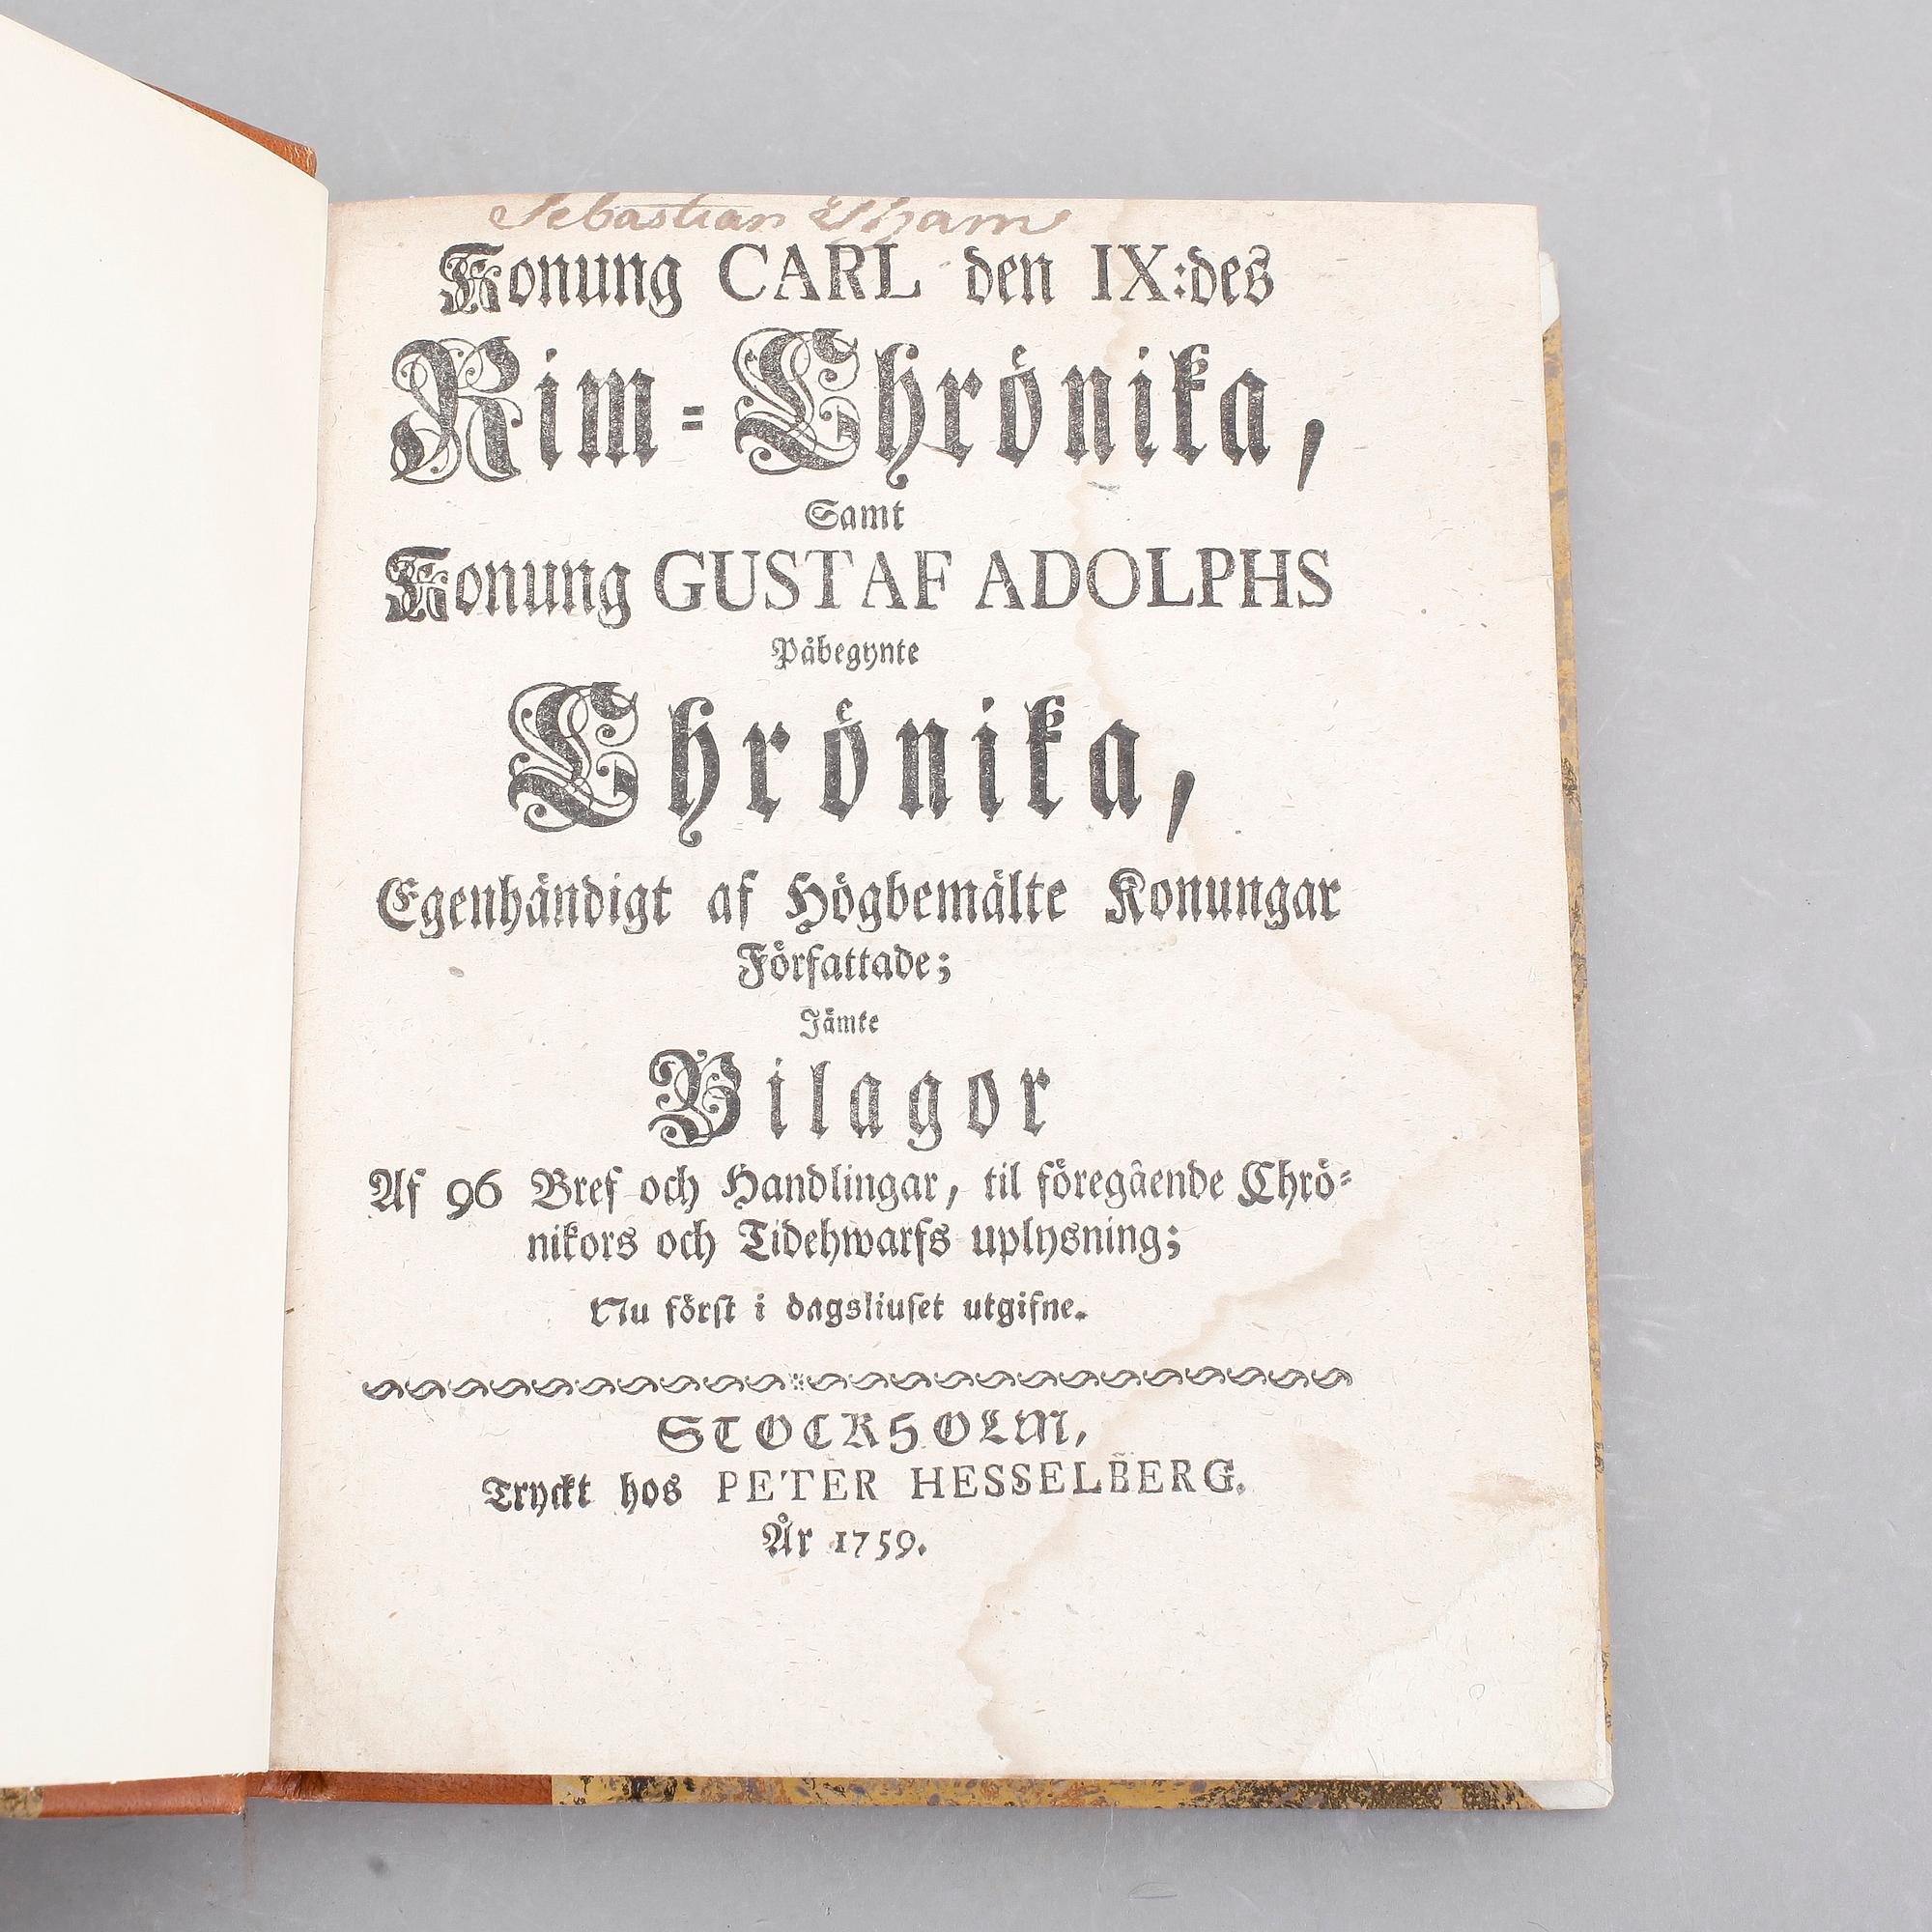 Sebastian Tham
Konung CARL den IX:des
Rim=Chrönika,
Samt
Konung GUSTAF ADOLPHS
Påbegynte
Chrönika,
Egenhändigt af Högbemälte Konungar
Författade;
Jämte
Bilagor
Af 96 Bref och Handlingar, til föregående Chrö=
nikors och Tidehwarfs uplysning;
Nu först i dagsliuset utgifne.
STOCKHOLM,
Tryckt hos PETER HESSELBERG.
År 1759.